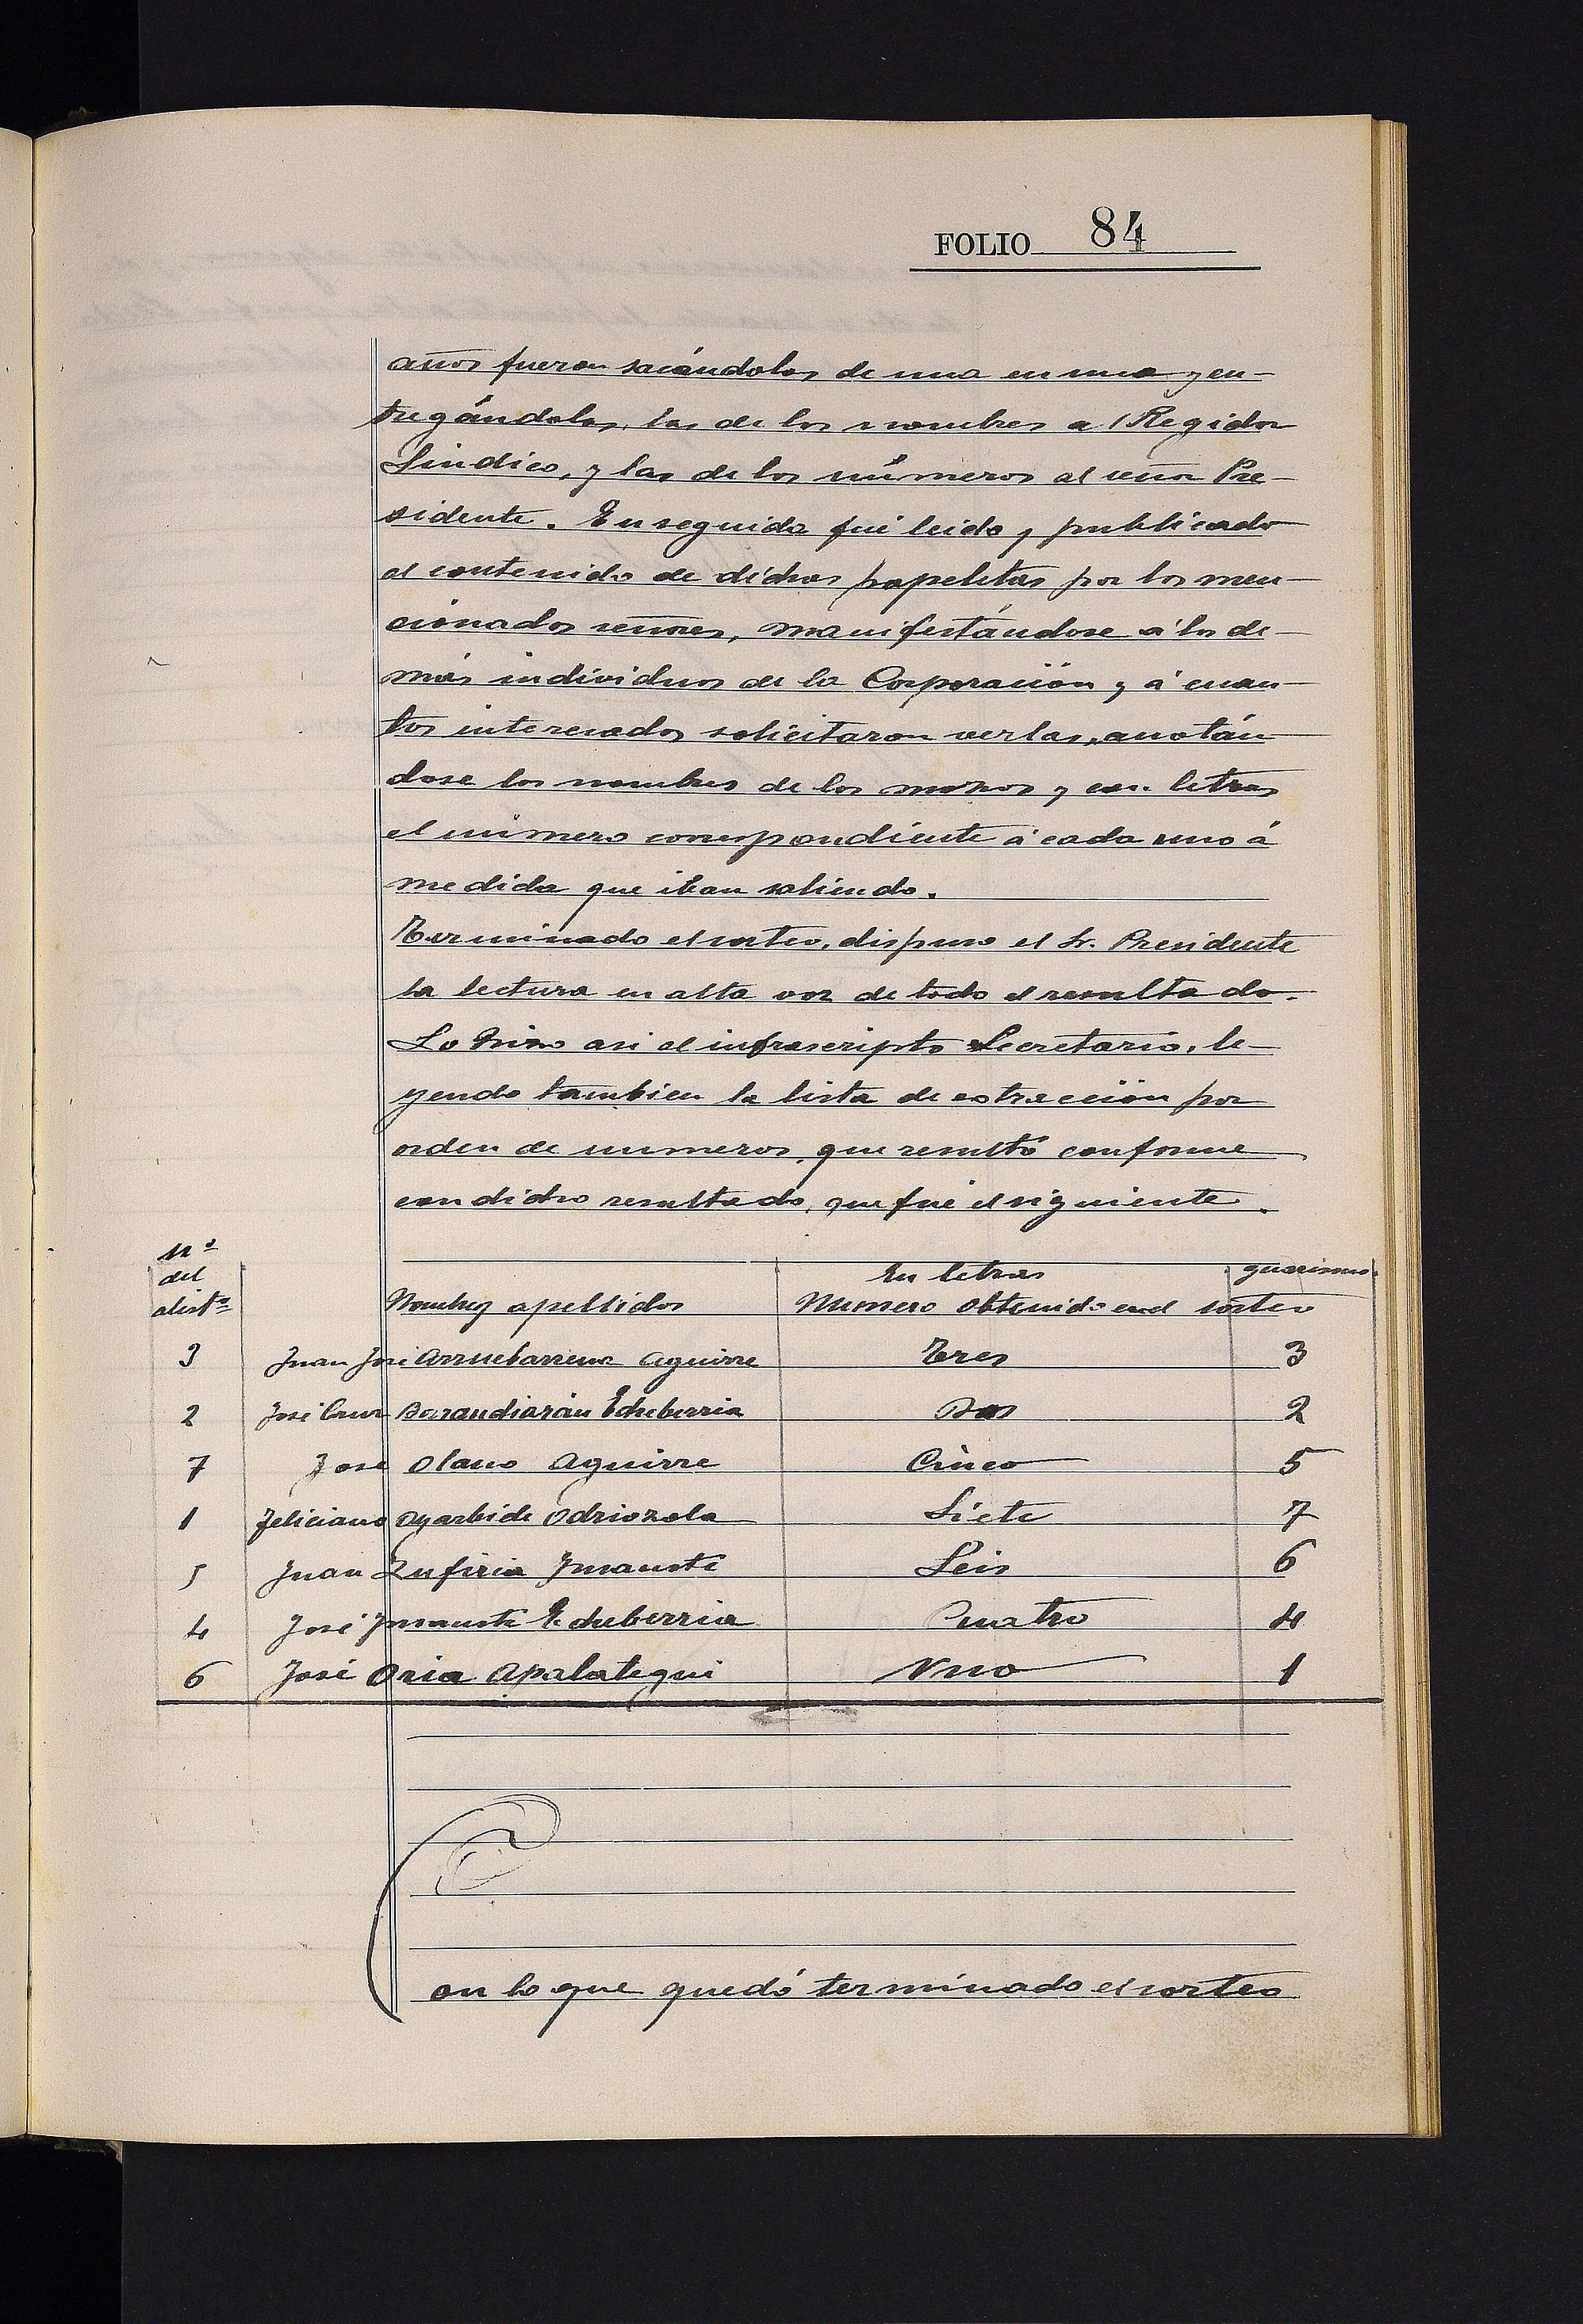 FOLIO 84
años fueron sacándolas de una en una y en-
tregándolas, las de los nombres al Regidor
Síndico, y las de los números al señor Pre-
sidente. Enseguida fué leido y publicado
el contenido de dichas papeletas por los men-
cionados señores, manifestándose á los de-
más individuos de la Corporación y á cuan-
tos interesados solicitaron verlas, anotán
dose los nombres de los mozos y con letras
el número correspondiente á cada uno á
medida que iban saliendo.
Terminado el sorteo, dispuso el Sr. Presidente
la lectura en alta voz de todo el resultado.
Lo hizo asi el infrascripto Secretario, le-
yendo tambien la lista de extracción por
orden de numeros, que resultó conforme
con dicho resultado, que fué el siguiente.
Nº del alistº Nombre y apellidos En letras guarismo
Numero obtenido en el sorteo
3 Juan José Arruebarrena Aguirre Tres 3
2 José Cruz Barandiarán Echeberria Dos 2
7 José Olano Aguirre Cinco 5
1 Feliciano Oyarbide Odriozola Siete 7
5 Juan Zufiria Ymausti Seis 6
4 José Ymausti Echeberria Cuatro 4
6 José Oria Apalategui Uno 1
Con lo que quedó terminado el sorteo